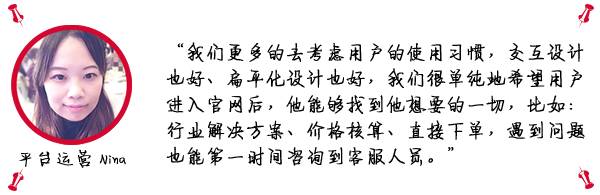 “我们更多的去考虑用户的使用习惯，交互设计
也好、扁平化设计也好，我们很单纯地希望用户
进入官网后，他能够找到他想要的一切，比如：
行业解决方案、价格核算、直接下单，遇到问题
也能第一时间咨询到客服人员。”
平台运营 Nina